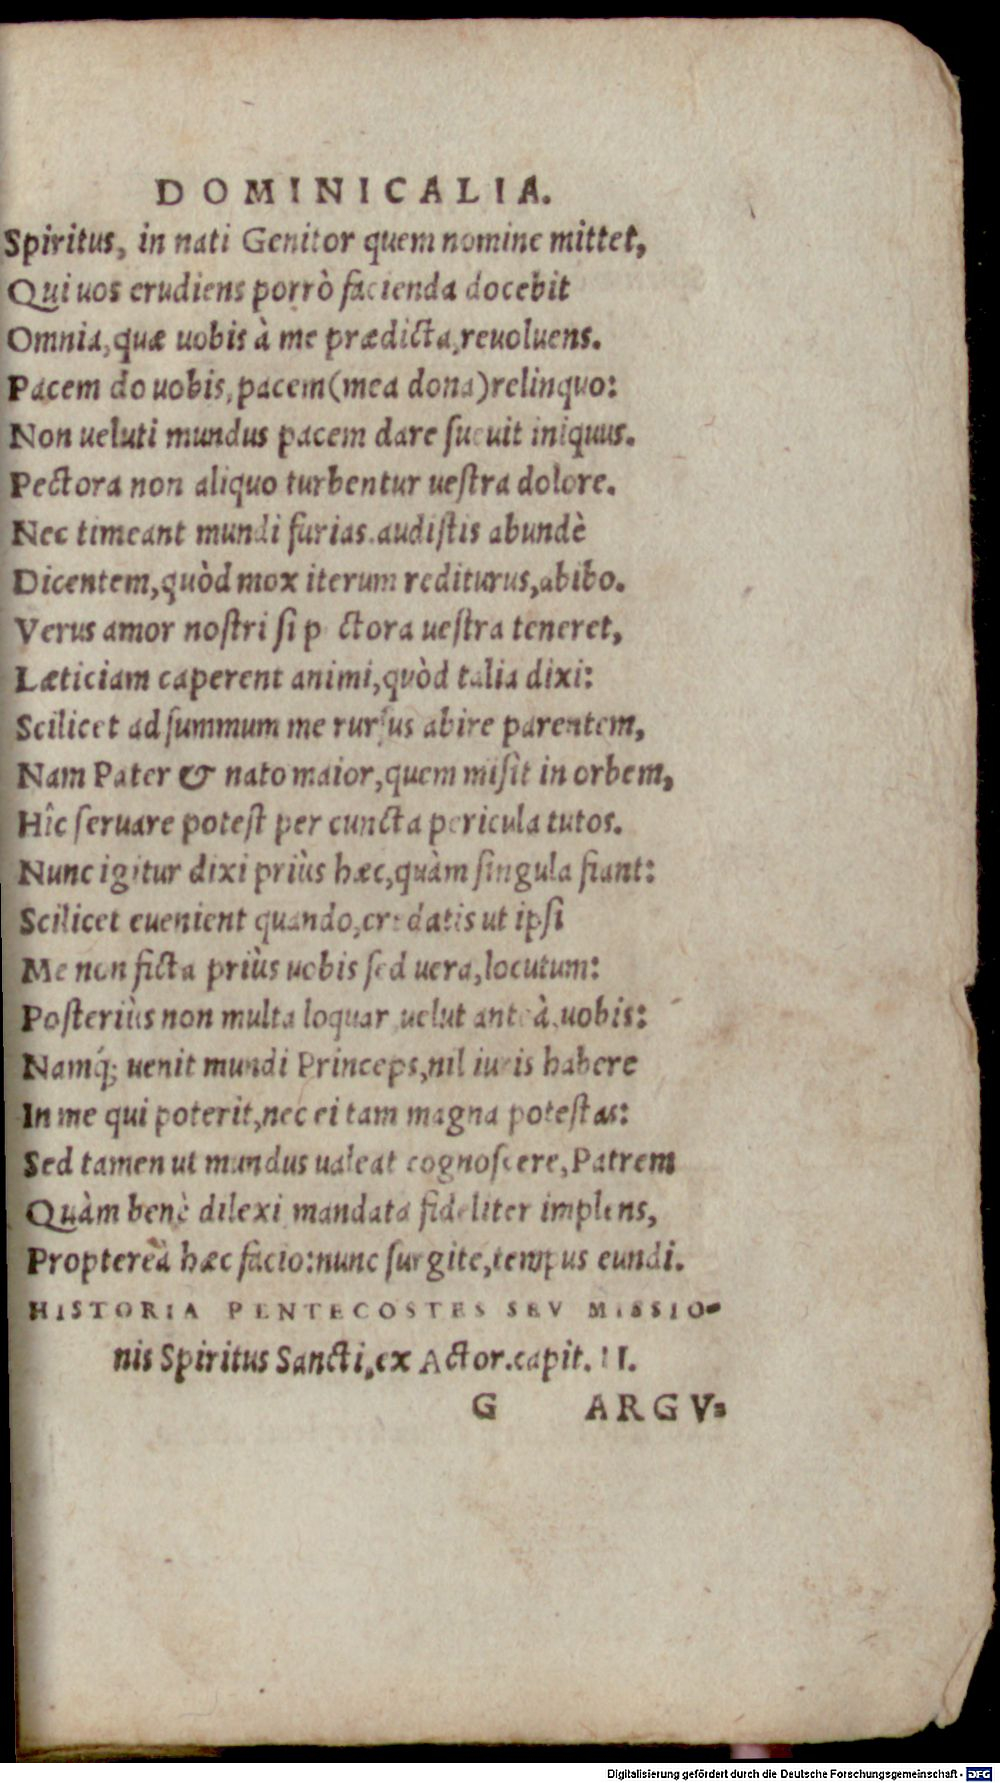 DOMINICALIA.
Spiritus, in nati Genitor quem nomine mittet,
Qui uos erudiens porrò facienda docebit
Omnia, quæ uobis à me prædicta, reuoluens.
Pacem do uobis, pacem (mea dona) relinquo:
Non ueluti mundus pacem dare sueuit iniquus.
Pectora non aliquo turbentur uestra dolore.
Nec timeant mundi furias. audistis abundè
Dicentem, quòd mox iterum rediturus, abibo.
Verus amor nostri si p ctora uestra teneret,
Læticiam caperent animi, quòd talia dixi:
Scilicet ad summum me rursus abire parentem,
Nam Pater & nato maior, quem misit in orbem,
Hîc seruare potest per cuncta pericula tutos.
Nunc igitur dixi priùs hæc, quàm singula fiant:
Scilicet euenient quando, credatis ut ipsi
Me non ficta priùs uobis sed uera, locutum:
Posteriùs non multa loquar uelut anteà, uobis:
Namq́; uenit mundi Princeps, nil iuris habere
In me qui poterit, nec ei tam magna potestas:
Sed tamen ut mundus ualeat cognoscere, Patrem
Quàm benè dilexi mandata fideliter implens,
Propterea hæc facio: nunc surgite, tempus eundi.
HISTORIA PENTECOSTES SEV MISSIO-
nis Spiritus Sancti, ex Actor. capit. II.
G ARGV-
Digitalisierung gefördert durch die Deutsche Forschungsgemeinschaft - DFG